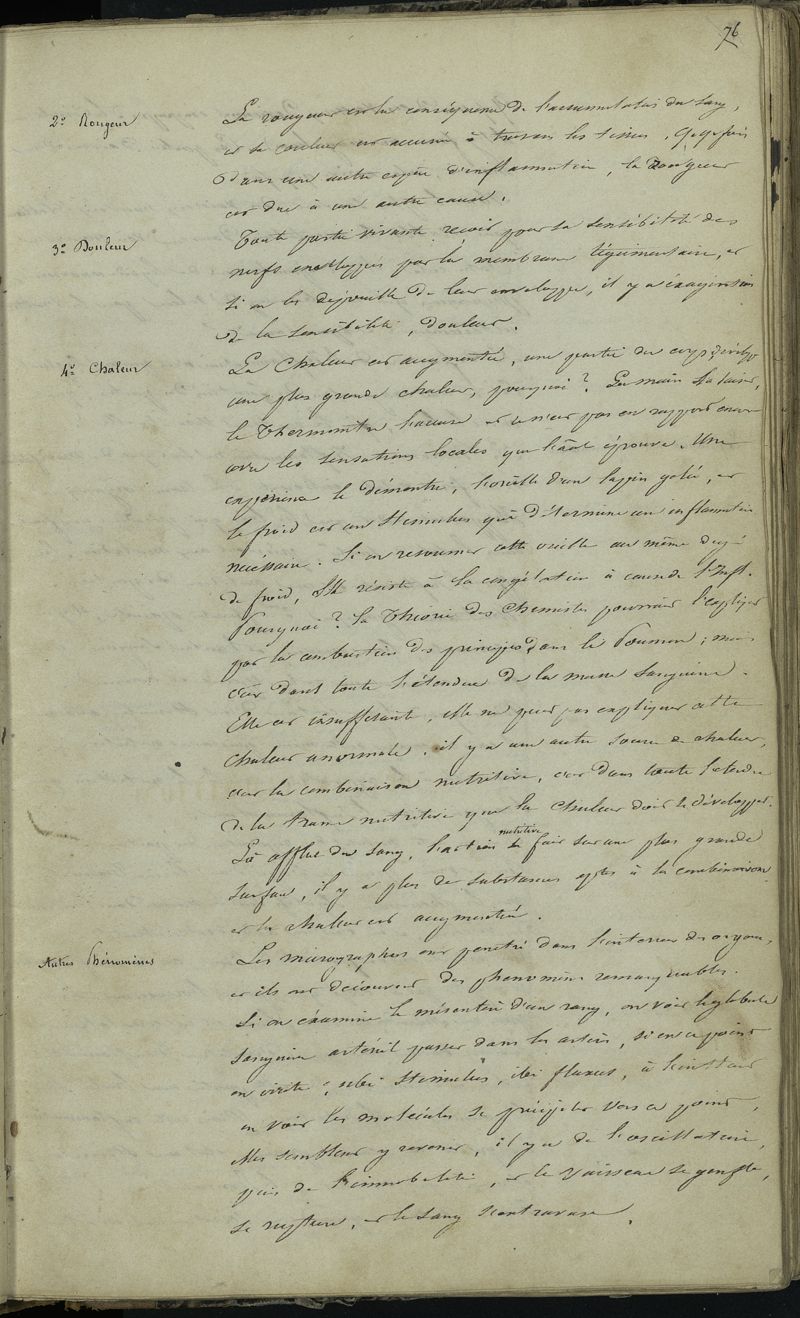 76
2º Rougeur
La rougeur est la conséquence de l'accumulation du sang,
et sa couleur est accusée à travers les tissus. Qq. fois
dans une autre espèce d'inflammation, la rougeur
est due à une autre cause.
3º Douleur
Toute partie vivante reçoit par sa sensibilité des
nerfs enveloppés par la membrane tégumentaire, et
si on les dépouille de leur enveloppe, il y a exagération
de la sensibilité, douleur.
4º Chaleur
La Chaleur est augmentée, une partie du corps développe
une plus grande chaleur, pourquoi? La main
le Thermomètre l'accuse et n'est pas en rapport
avec les sensations locales que éprouve. Une
expérience le démontre, l'oreille d'un lapin gelée, et
le froid est un stimulus qui détermine une inflammation
nécessaire. Si on resoumet cette oreille au même degré
de froid, Elle résiste à la congélation à cause de l'Infl.
Pourquoi? la Théorie des Chemistes pourrait l'expliquer
par la combustion des principes dans le Poumon; mais
c'est dans toute l'étendue de la masse Sanguine.
Elle est insuffisante, elle ne peut pas expliquer cette
chaleur anormale. il y a une autre source de chaleur,
c'est la combinaison nutritive, c'est dans toute l'étendue
de la trame nutritive que la Chaleur doit se développer.
Là afflue du sang, l'action nutritive se fait sur une plus grande
surface, il y a plus de substances aptes à la combinaison
et la chaleur est augmentée.
Autres Phénomènes
Les micrographes ont penetré dans l'interieur des organes,
et ils ont découvert des phénomènes remarquables.
Si on examine le mésentère d'un rang, on voit le globule
sanguin artériel passer dans les artères, si en ce point
on irrite; ubi stimulus, ibi fluxus, à l'instant
on voit les molécules se précipiter vers ce point,
elles semblent y revenir, il y a de l'oscillatoire,
puis de l'immobilité, et le vaisseau se gonfle,
se rupture, et le sang s'extravase.